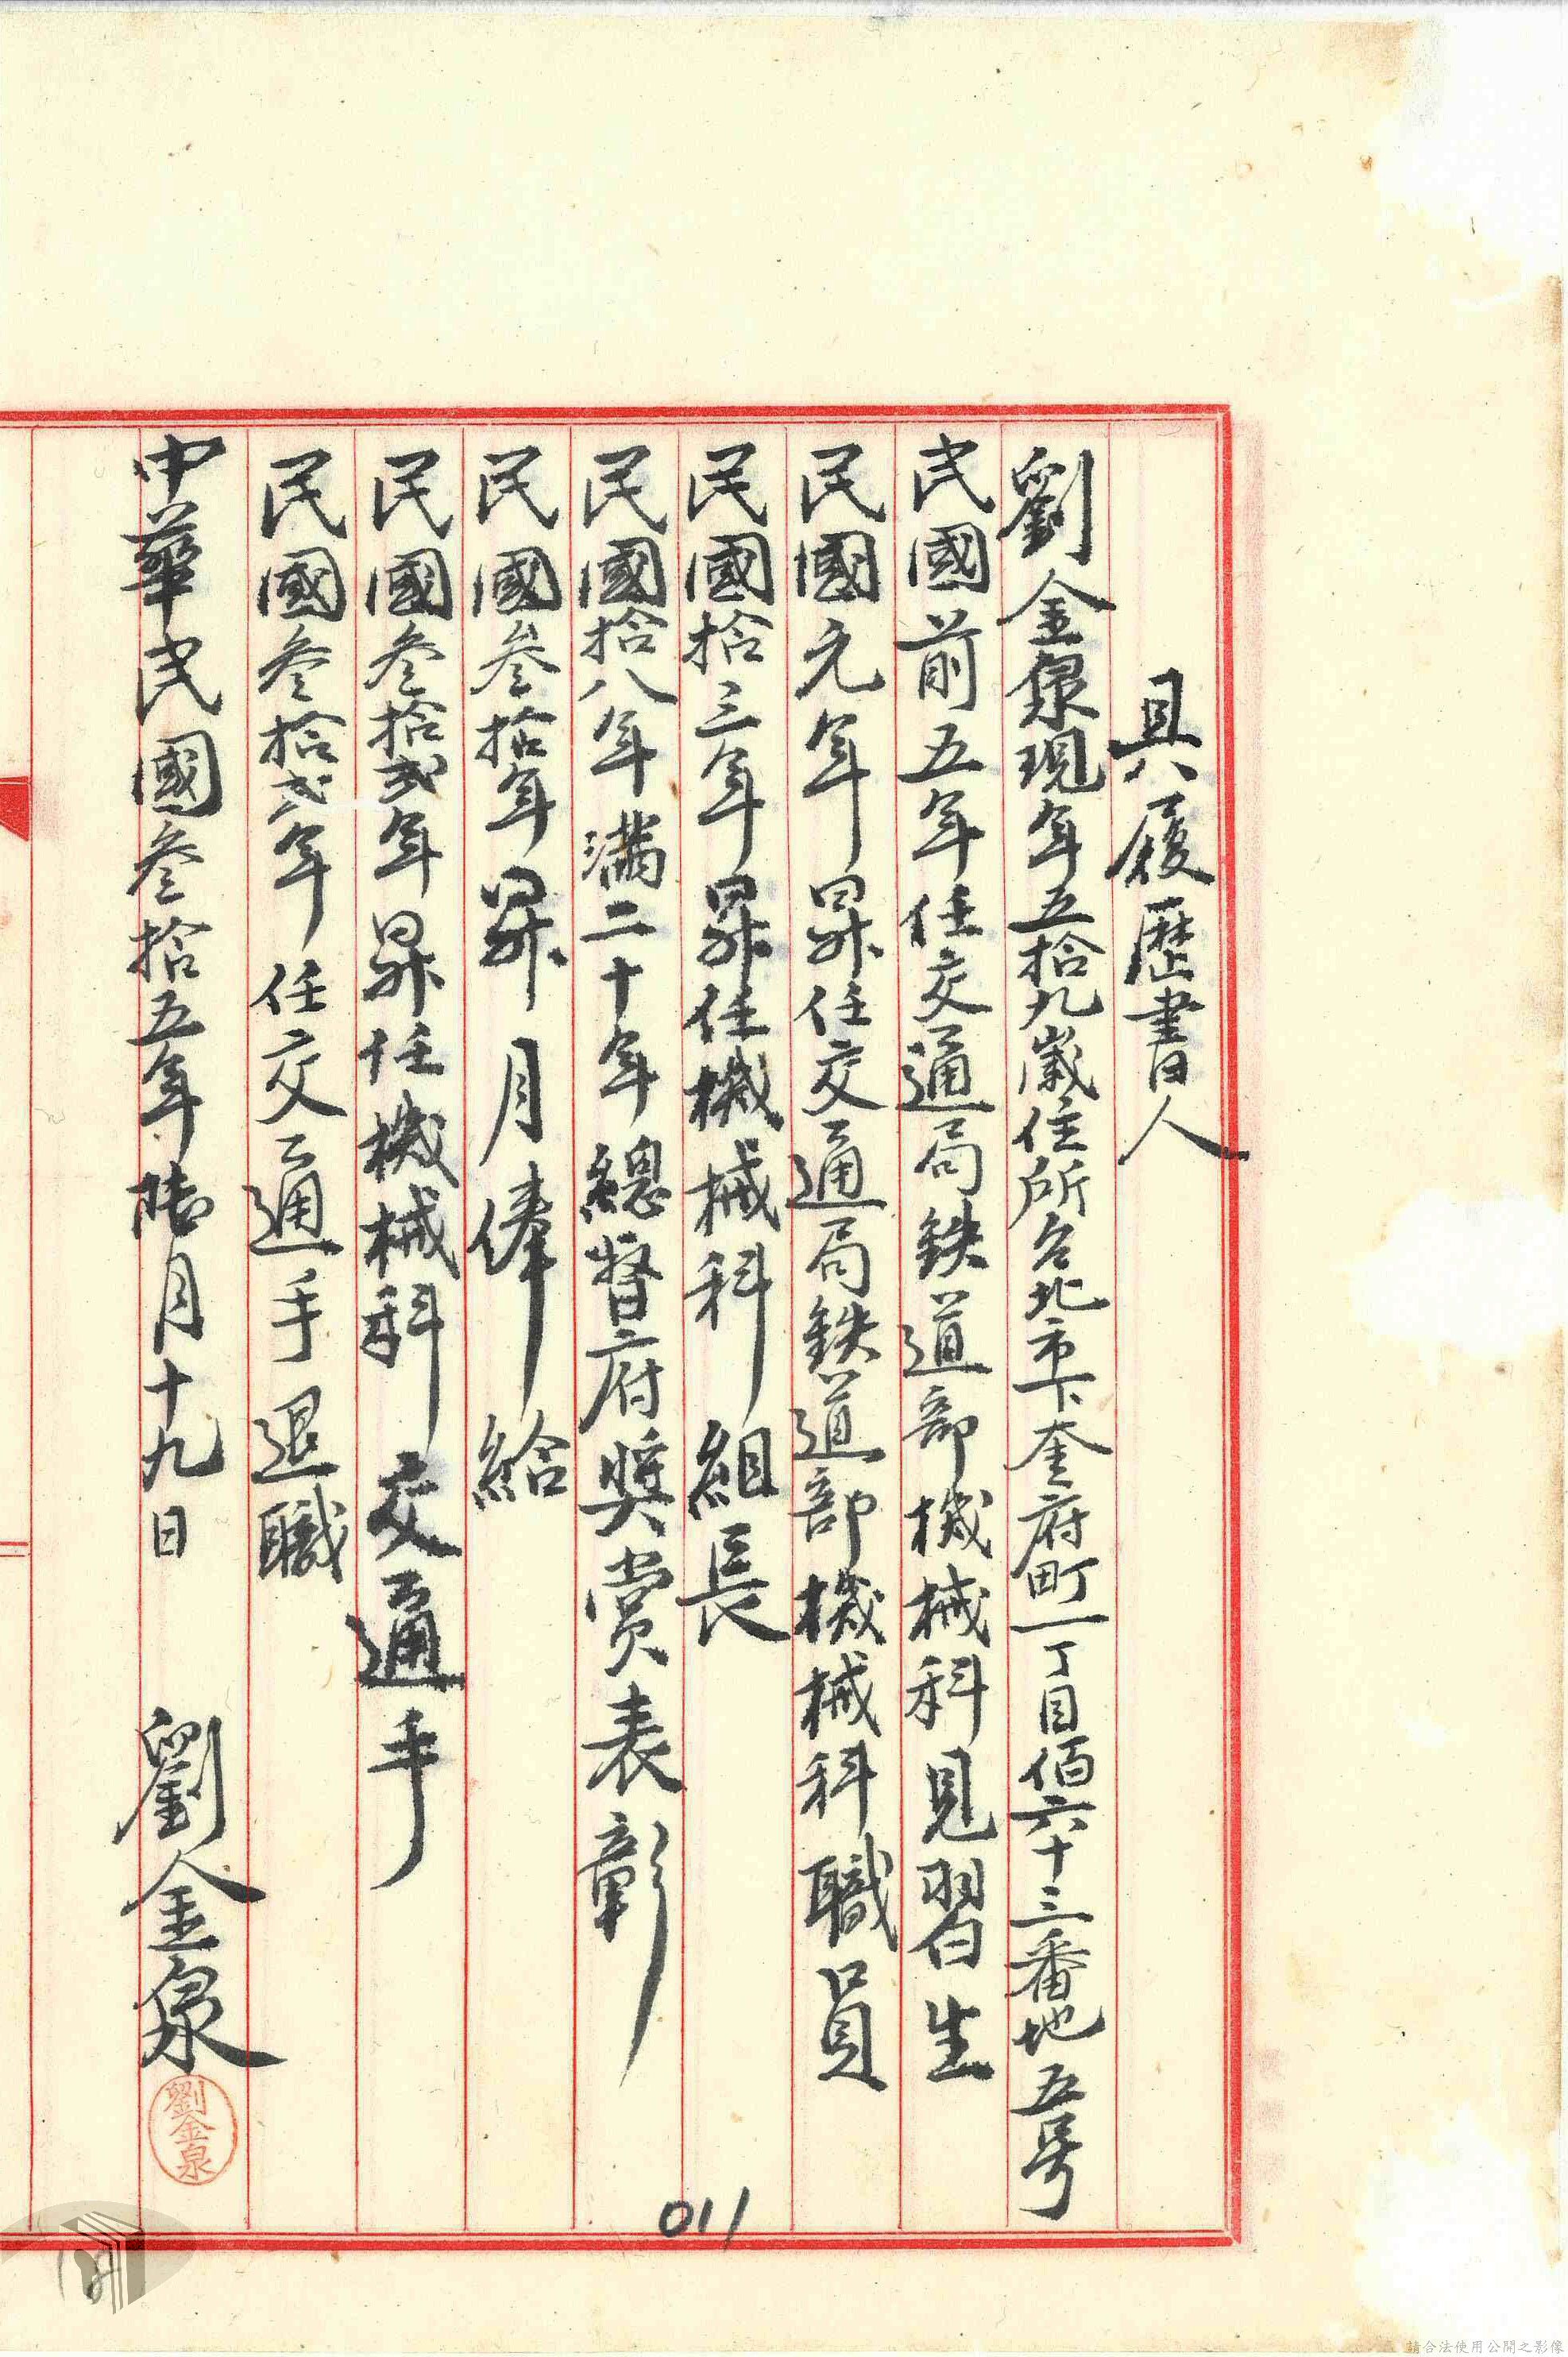 具履歷書人
劉金泉現年五拾九歲住所台北市下奎府町一丁目佰六十三番地五号
民國前五年任交通局鉄道部機械科見習生
民國元年昇任交通局鉄道部機械科職員
民國拾三年昇任機械科組長
民國拾八年滿二十年總督府奬賞表彰
民國叁拾年昇月俸給
民國叁拾弍年昇任機械科交通手
民國叁拾弍年任交通手退職
中華民國叁拾五年陸月十九日 劉金泉
劉金泉
011
請合法使用公開之影像